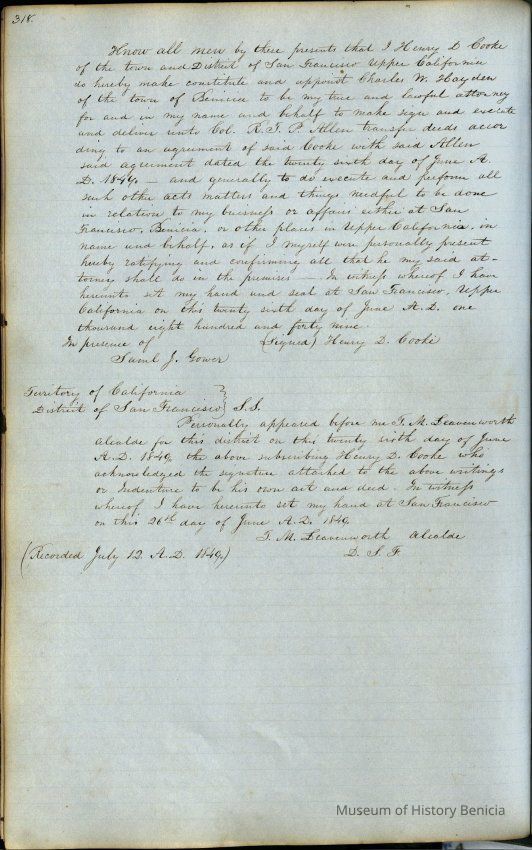 318.
Know all men by these presents that I Henry D Cooke
of the town and District of San Francisco Upper California
do hereby make constitute and appoint Charles W. Hayden
of the town of Benicia to be my true and lawful attorney
for and in my name and behalf to make sign and execute
and deliver unto Col. R. T. P. Allen transfer deeds accor
ding to an agreement of said Cooke with said Allen
said agreement dated the twenty sixth day of June A
D. 1849. — and generally to do execute and perform all
such other acts matters and things needful to be done
in relation to my buisness or affairs either at San
Francisco, Benicia, or other places in Upper California, in
name and behalf, as if I myself were personally present
hereby ratifying and confirming all that he my said at-
torney shall do in the premises — In witness whereof I have
hereunto set my hand and seal at San Francisco, Upper
California on this twenty sixth day of June A.D. one
thousand eight hundred and forty nine.
In presence of (Signed) Henry D. Cooke
Saml J. Gower
Territory of California }
District of San Francisco } S.S.
Personally appeared before me T. M. Leavenworth
alcalde for this district on this twenty sixth day of June
A.D. 1849, the above subscribing Henry D. Cooke who
acknowledged the signature attached to the above writings
or Indenture to be his own act and deed. In witness
whereof I have hereunto set my hand at San Francisco
on this 26th day of June A.D. 1849.
T. M. Leavenworth Alcalde
(Recorded July 12 A.D. 1849.) D. S. F.
Museum of History Benicia